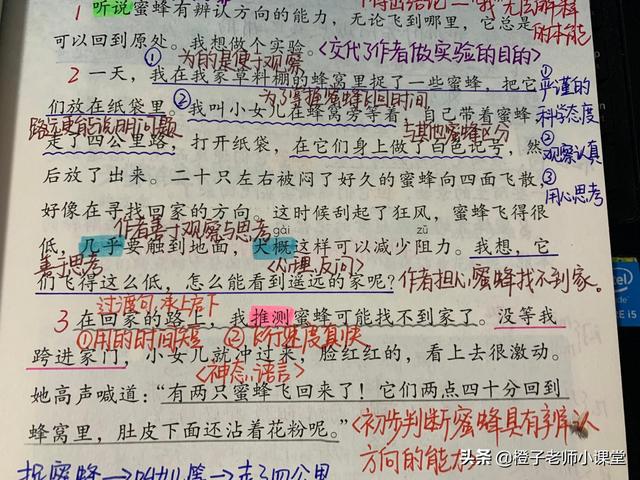 得出结论—“我”无法解释
的本能
1 听说蜜蜂有辨认方向的能力，无论飞到哪里，它总是
可以回到原处。我想做个实验。<交代了作者做实验的目的>
① 为的是便于观察
2 一天，我在我家草料棚的蜂窝里捉了一些蜜蜂，把它
① 严谨的
科学态度
② 观察认真
③ 用心思考
② 为了掌握蜜蜂飞回时间
们放在纸袋里。我叫小女儿在蜂窝旁等着，自己带着蜜蜂
路远更能说明问题
与其他蜜蜂区分
走了四公里路，打开纸袋，在它们身上做了白色记号，然
后放了出来。二十只左右被闷了好久的蜜蜂向四面飞散，
好像在寻找回家的方向。这时候刮起了狂风，蜜蜂飞得很
作者善于观察与思考
gài
zǔ
低，几乎要触到地面，大概这样可以减少阻力。我想，它
善于思考
<心理，反问>
们飞得这么低，怎么能看到遥远的家呢？作者担心蜜蜂找不到家。
过渡句，承上启下
3 在回家的路上，我推测蜜蜂可能找不到家了。没等我
①用的时间短 ②飞行速度真快
跨进家门，小女儿就冲过来，脸红红的，看上去很激动。
<神态、语言>
她高声喊道：“有两只蜜蜂飞回来了！它们两点四十分回到
蜂窝里，肚皮下面还沾着花粉呢。”<初步判断蜜蜂具有辨认
方向的能力>
捉蜜蜂→叫女儿等→走了四公里
intel
CORE i5
头条 @橙子老师小课堂